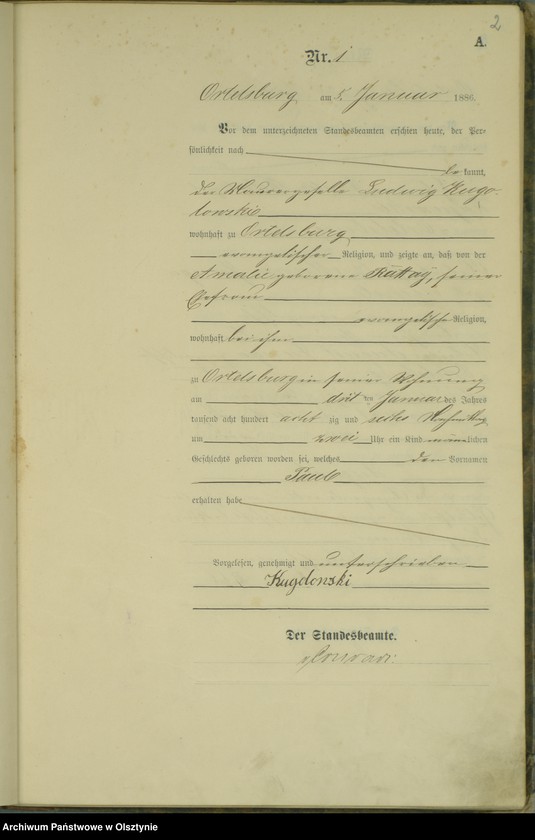 2
A.
Nr. 1
Ortelsburg am 5. Januar 1886.
Vor dem unterzeichneten Standesbeamten erschien heute, der Per-
sönlichkeit nach
be kannt,
der Maurergeselle Ludwig Kugd-
lowskie
wohnhaft zu Ortelsburg
evangelischer Religion, und zeigte an, daß von der
Amalie geborene Ruttkay, seiner
Ehefrau
evangelische Religion,
wohnhaft bei ihm
zu Ortelsburg in seiner Wohnung
am drit ten Januar des Jahres
tausend acht hundert acht zig und sechs Nachmittag
um zwei Uhr ein Kind männlichen
Geschlechts geboren worden sei, welches den Vornamen
Paul
erhalten habe
Vorgelesen, genehmigt und unterschrieben
Kugdonski
Der Standesbeamte.
Archiwum Państwowe w Olsztynie